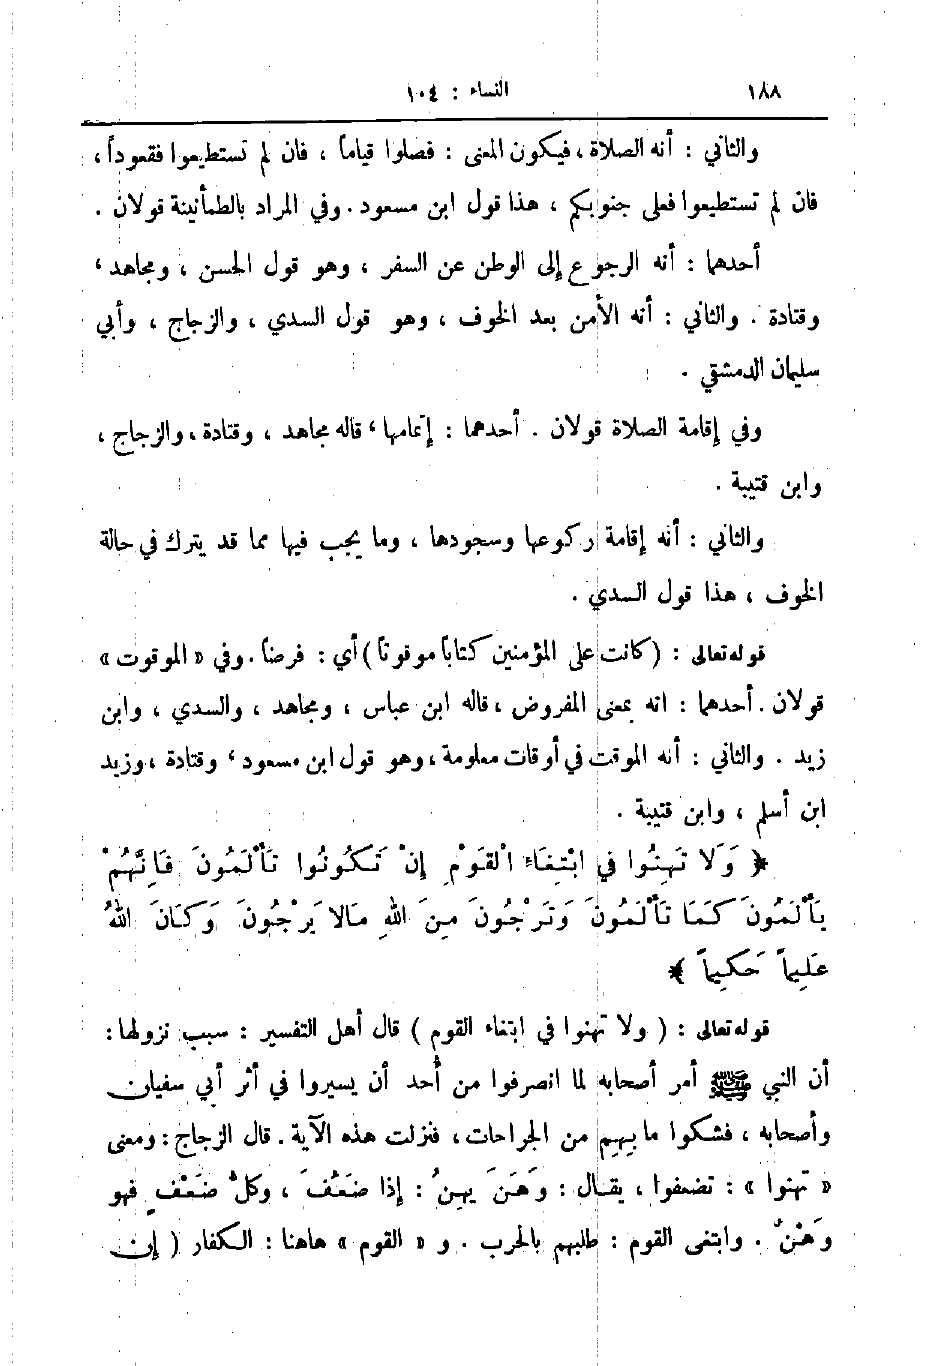 ١٨٨
النساء : ١٠٤
والثاني : أنه الصلاة ، فيكون المعنى : فصلوا قياماً ، فان لم تستطيعوا فقعوداً ،
فان لم تستطيعوا فعلى جنوبكم ، هذا قول ابن مسعود . وفي المراد بالطمأنينة قولان .
أحدهما : أنه الرجوع إلى الوطن عن السفر ، وهو قول الحسن ، ومجاهد ،
وقتادة . والثاني : أنه الأمن بعد الخوف ، وهو قول السدي ، والزجاج ، وأبي
سليمان الدمشقي .
وفي إقامة الصلاة قولان . أحدهما : إتمامها ، قاله مجاهد ، وقتادة ، والزجاج ،
وابن قتيبة .
والثاني : أنه إقامة ركوعها وسجودها ، وما يجب فيها مما قد يترك في حالة
الخوف ، هذا قول السدي .
قوله تعالى : ( كانت على المؤمنين كتاباً موقوتاً ) أي : فرضاً . وفي « الموقوت »
قولان . أحدهما : انه بمعنى المفروض ، قاله ابن عباس ، ومجاهد ، والسدي ، وابن
زيد . والثاني : أنه الموقت في أوقات معلومة ، وهو قول ابن مسعود ، وقتادة ، وزيد
ابن أسلم ، وابن قتيبة .
﴿ وَلَا تَهِنُوا في ابْتِغَاءِ الْقَوْمِ إِنْ تَكُونُوا تَأْلَمُونَ فَإِنَّهُمْ
يَأْلَمُونَ كَمَا تَأْلَمُونَ وَتَرْجُونَ مِنَ اللهِ مَالا يَرْجُونَ وَكَانَ اللهُ
عَلِيماً حَكِيماً ﴾
قوله تعالى : ( ولا تهنوا في ابتغاء القوم ) قال أهل التفسير : سبب نزولها :
أن النبي ﷺ أمر أصحابه لما انصرفوا من أُحد أن يسيروا في أثر أبي سفيان
وأصحابه ، فشكوا ما بِهِم من الجراحات ، فنزلت هذه الآية . قال الزجاج : ومعنى
« تهنوا » : تضعفوا ، يقال : وَهَنَ يهِنُ : إذا ضَعُفَ ، وكلُّ ضَعْفٍ فهو
وَهْنٌ . وابتغى القوم : طلبهم بالحرب . و « القوم » هاهنا : الكفار ( إِن